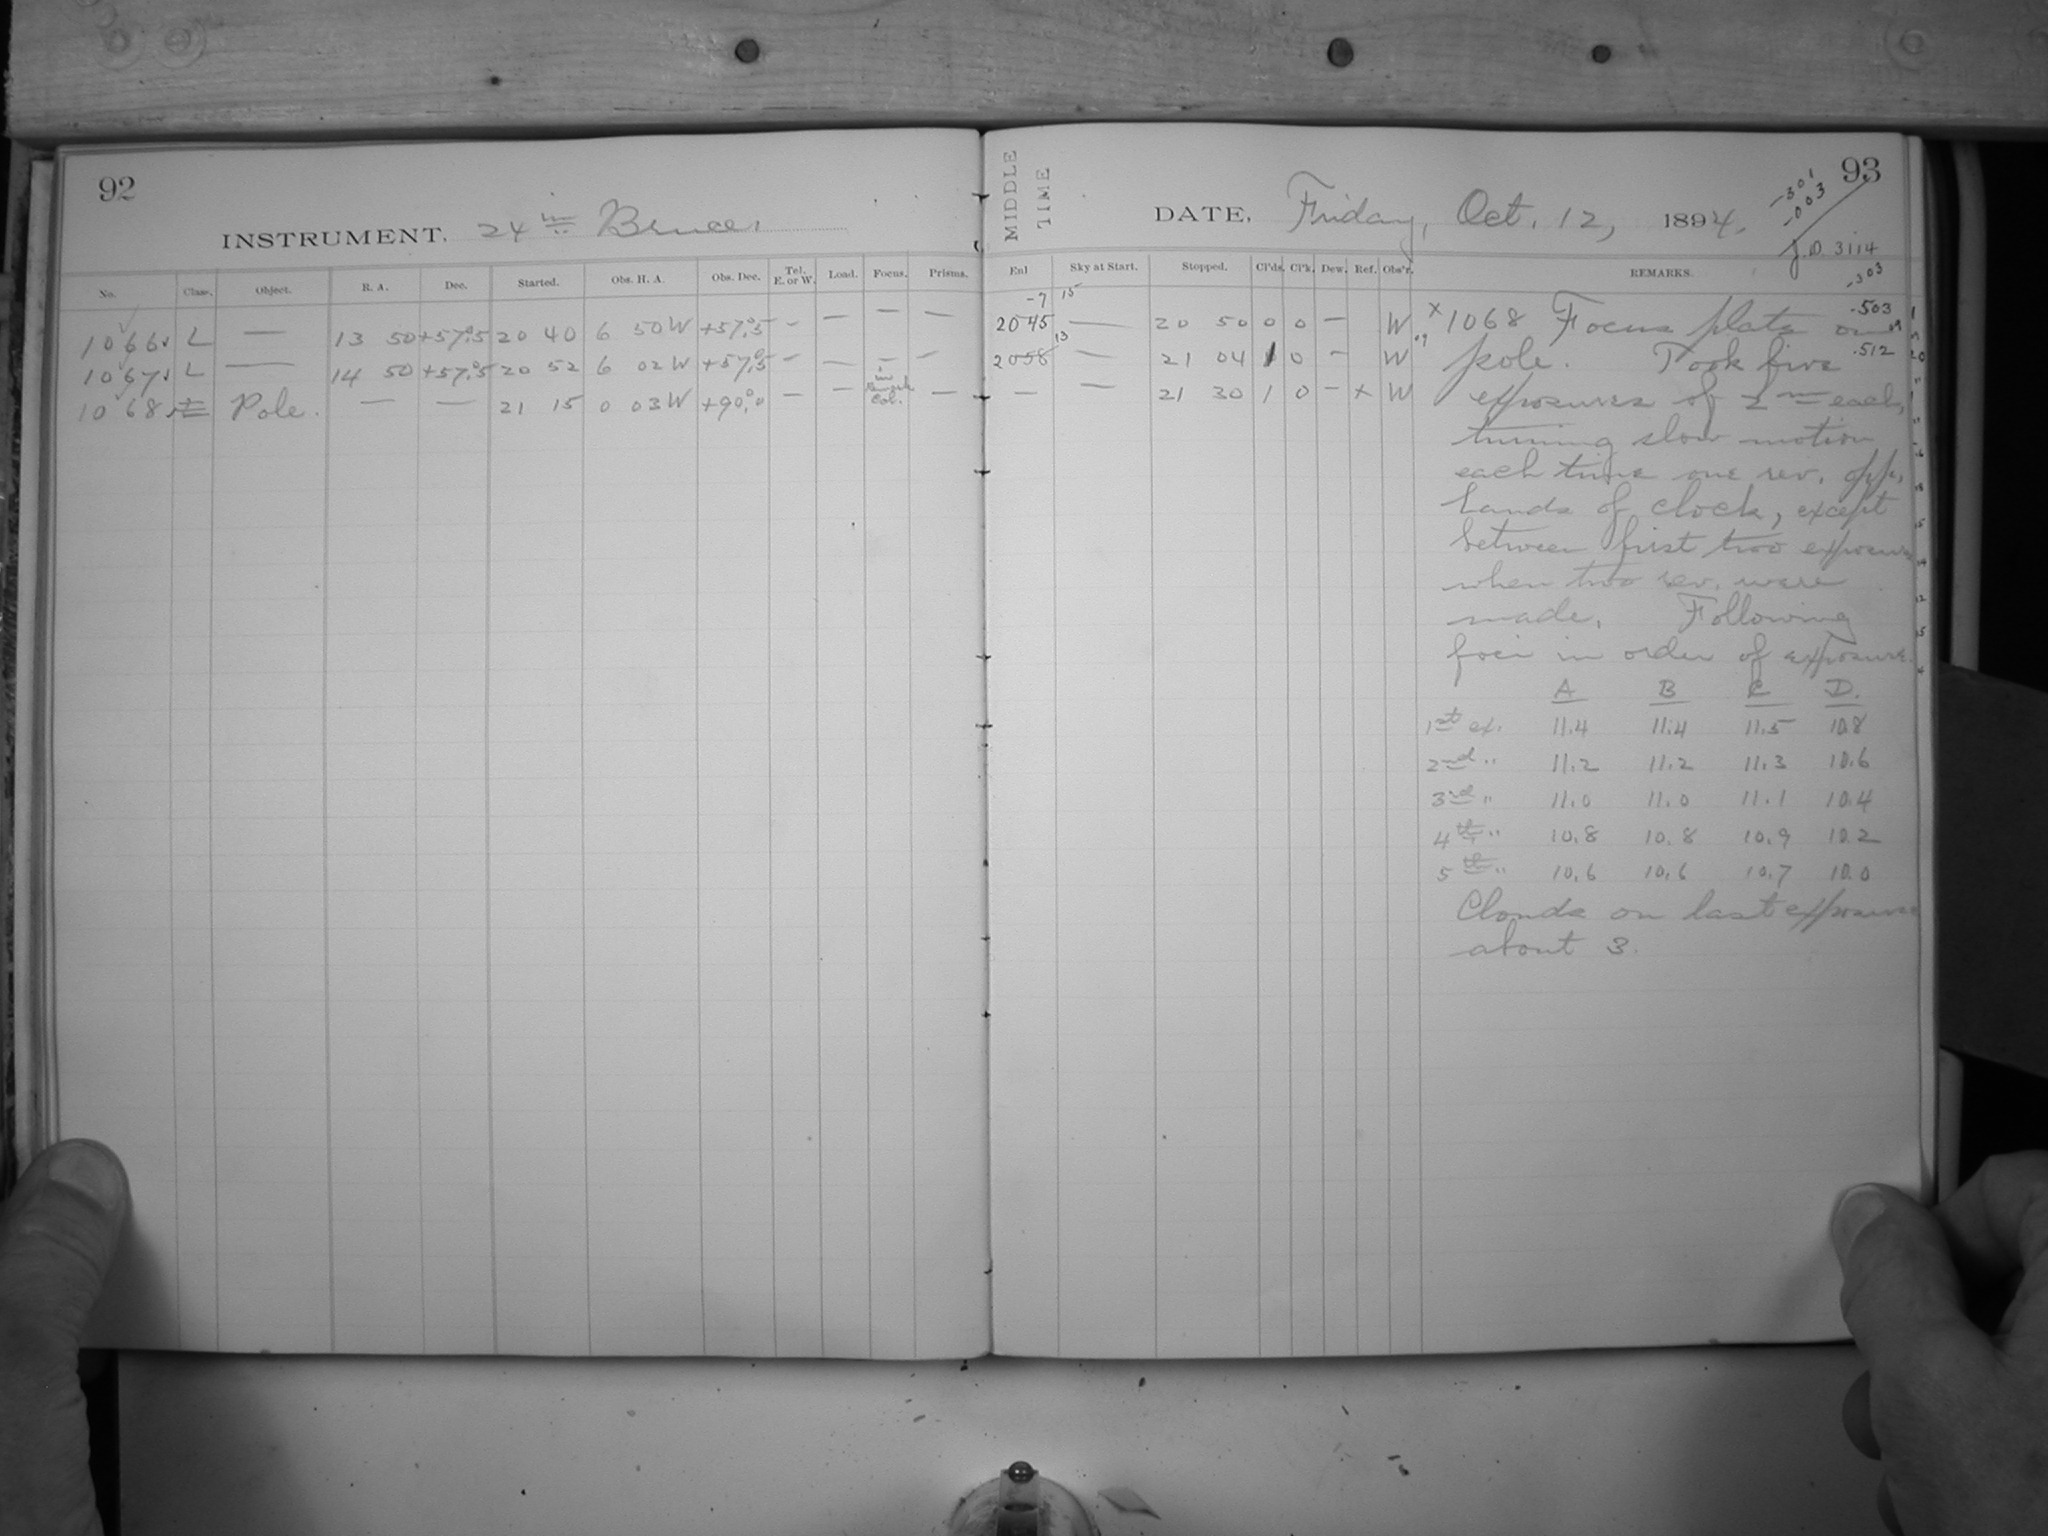 92
INSTRUMENT. 24 in Bruce.
No. Class. Object. R. A. Dec. Started. Obs. H. A. Obs. Dec. Tel. E. or W. Load. Focus. Prisms.
1066 L — 13 50 +57°.5 20 40 6 50 W +57°.5 – — — —
1067 L — 14 50 +57°.5 20 52 6 02 W +57°.5 – — – –
1068 Pole. — — 21 15 0 03 W +90°.0 – – in Remark Col. —
MIDDLE TIME
DATE, Friday, Oct. 12, 1894.
93
-301
-003
J.D. 3114
-303
Enl Sky at Start. Stopped. Cl'ds Cl'k. Dew. Ref. Obs'r. REMARKS.
-7 15
2045 — 20 50 0 0 – W
13
2058 — 21 04 1 0 – W
— — 21 30 1 0 – x W
.503
.512
x 1068 Focus plate on
pole. Took five
exposures of 2 m each,
turning slow motion
each time one rev. opp.
hands of clock, except
between first two exposures
when two rev. were
made. Following
foci in order of exposure.
A B C D.
1st ex. 11.4 11.4 11.5 10.8
2nd " 11.2 11.2 11.3 10.6
3rd " 11.0 11.0 11.1 10.4
4th " 10.8 10.8 10.9 10.2
5th " 10.6 10.6 10.7 10.0
Clouds on last exposure
about 3.